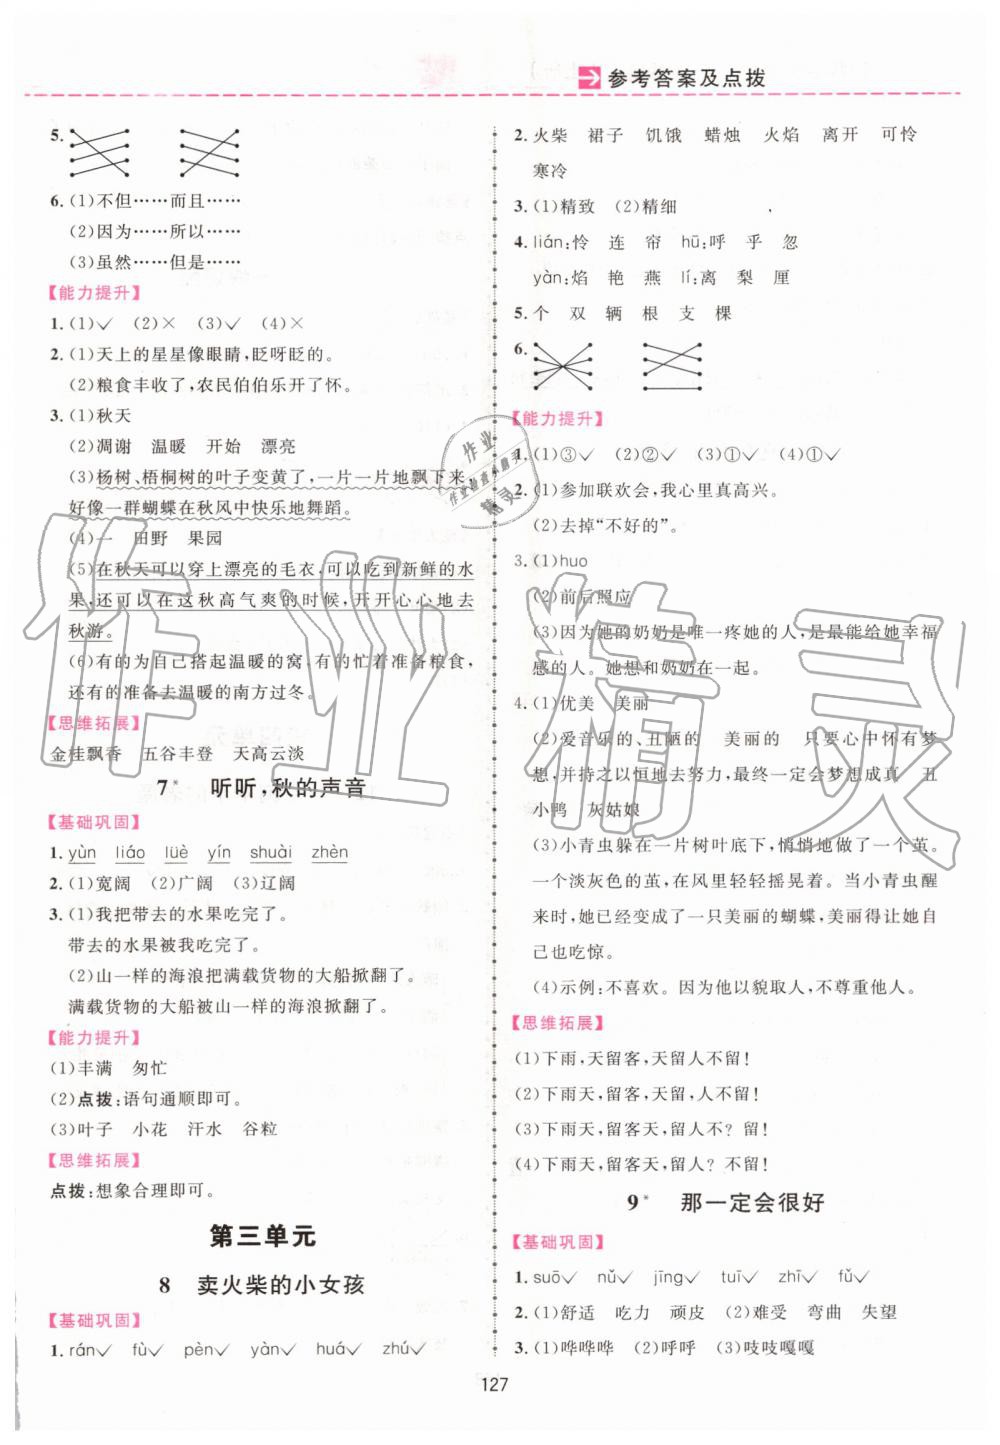 参考答案及点拨
5.
6.(1)不但……而且……
(2)因为……所以……
(3)虽然……但是……
【能力提升】
1.(1)✓ (2)× (3)✓ (4)×
2.(1)天上的星星像眼睛,眨呀眨的。
(2)粮食丰收了,农民伯伯乐开了怀。
3.(1)秋天
(2)凋谢 温暖 开始 漂亮
(3)杨树、梧桐树的叶子变黄了,一片一片地飘下来,
好像一群蝴蝶在秋风中快乐地舞蹈。
(4)一 田野 果园
(5)在秋天可以穿上漂亮的毛衣,可以吃到新鲜的水
果,还可以在这秋高气爽的时候,开开心心地去
秋游。
(6)有的为自己搭起温暖的窝,有的忙着准备粮食,
还有的准备去温暖的南方过冬。
【思维拓展】
金桂飘香 五谷丰登 天高云淡
7* 听听,秋的声音
【基础巩固】
1. yùn liáo lüè yín shuài zhèn
2.(1)宽阔 (2)广阔 (3)辽阔
3.(1)我把带去的水果吃完了。
带去的水果被我吃完了。
(2)山一样的海浪把满载货物的大船掀翻了。
满载货物的大船被山一样的海浪掀翻了。
【能力提升】
(1)丰满 匆忙
(2)点拨:语句通顺即可。
(3)叶子 小花 汗水 谷粒
【思维拓展】
点拨:想象合理即可。
第三单元
8 卖火柴的小女孩
【基础巩固】
1. rán✓ fù✓ pèn✓ yàn✓ huá✓ zhú✓
2. 火柴 裙子 饥饿 蜡烛 火焰 离开 可怜
寒冷
3.(1)精致 (2)精细
4. lián:怜 连 帘 hū:呼 乎 忽
yàn:焰 艳 燕 lí:离 梨 厘
5. 个 双 辆 根 支 棵
6.
【能力提升】
1.(1)③✓ (2)②✓ (3)①✓ (4)①✓
2.(1)参加联欢会,我心里真高兴。
(2)去掉“不好的”。
3.(1)huo
(2)前后照应
(3)因为她的奶奶是唯一疼她的人,是最能给她幸福
感的人。她想和奶奶在一起。
4.(1)优美 美丽
(2)爱音乐的、丑陋的 美丽的 只要心中有梦
想,并持之以恒地去努力,最终一定会梦想成真 丑
小鸭 灰姑娘
(3)小青虫躲在一片树叶底下,悄悄地做了一个茧。
一个淡灰色的茧,在风里轻轻摇晃着。当小青虫醒
来时,她已经变成了一只美丽的蝴蝶,美丽得让她自
己也吃惊。
(4)示例:不喜欢。因为他以貌取人,不尊重他人。
【思维拓展】
(1)下雨,天留客,天留人不留!
(2)下雨天,留客天,留,人不留!
(3)下雨天,留客天,留人不?留!
(4)下雨天,留客天,留人?不留!
9* 那一定会很好
【基础巩固】
1. suō✓ nǔ✓ jīng✓ tuī✓ zhī✓ fǔ✓
2.(1)舒适 吃力 顽皮 (2)难受 弯曲 失望
3.(1)哗哗哗 (2)呼呼 (3)吱吱嘎嘎
127
作业精灵